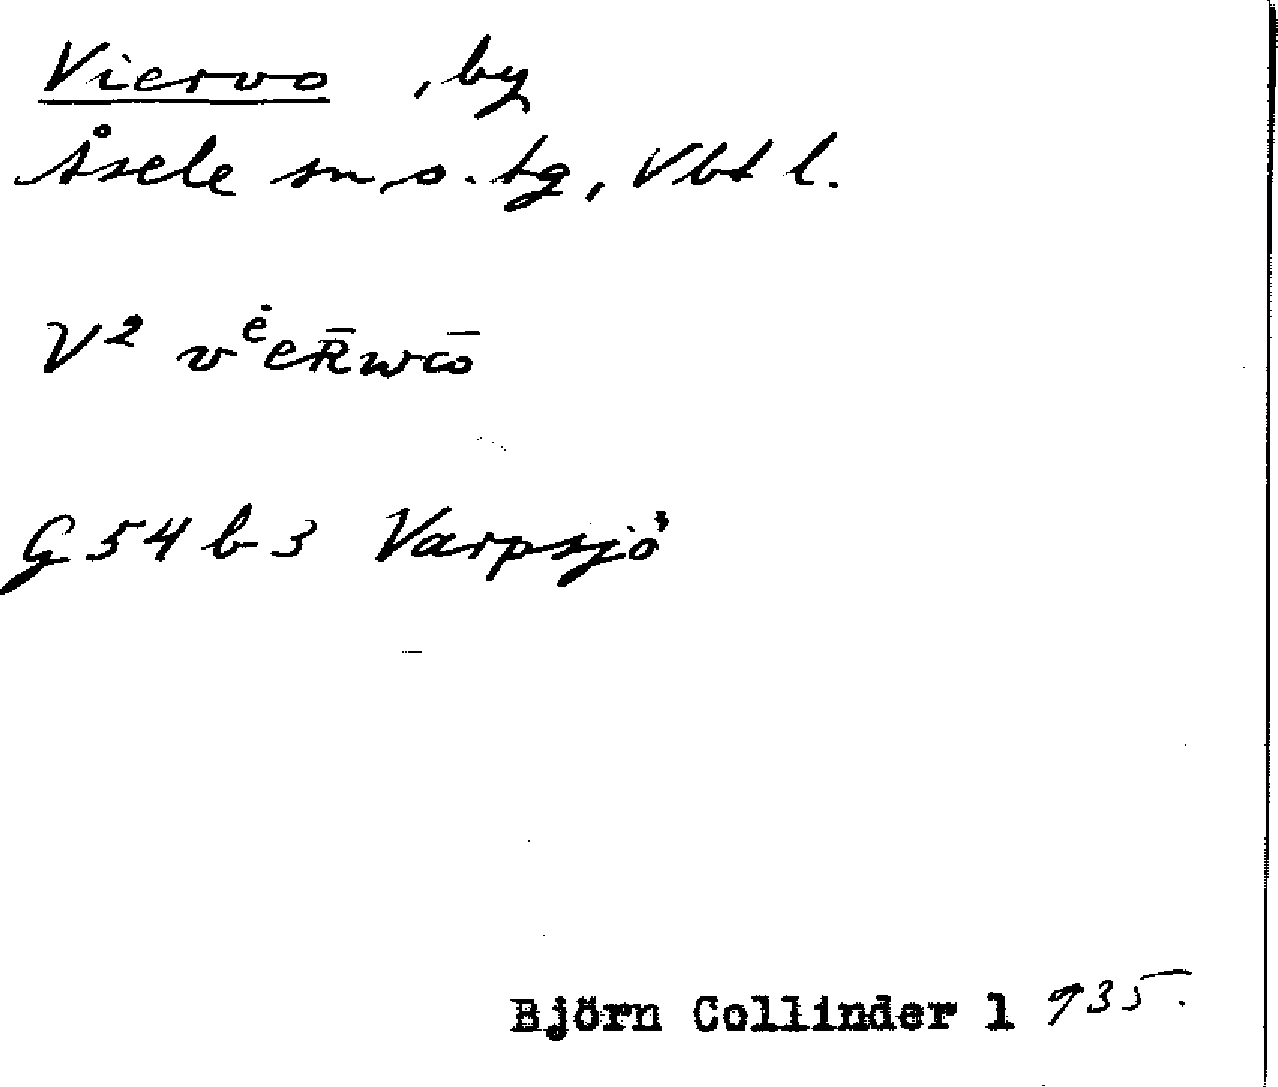 Viervo , by
Åsele sn, o. tg, Vbt l.
V² vėeR̄wō
G 54 b 3 Varpsjö
Björn Collinder 1 935.